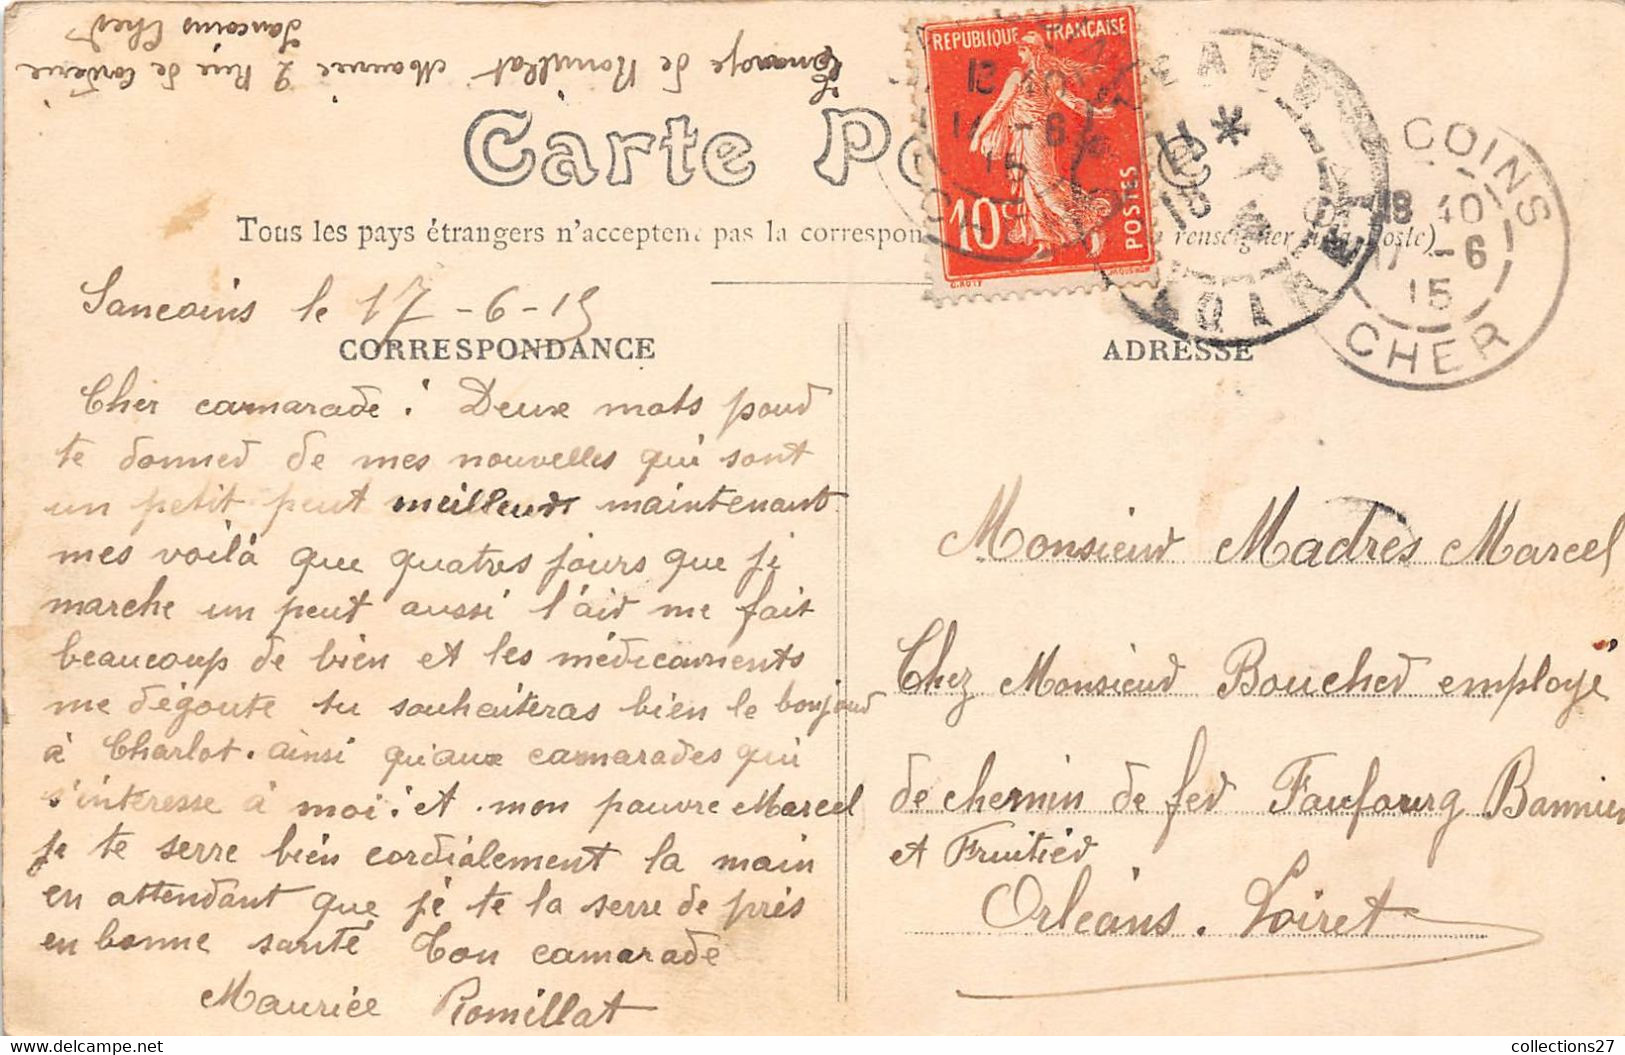 de Romillat Maurice 2 Rue de
Sancoins Cher
Carte Po
Tous les pays étrangers n'acceptent pas la correspon renseigner oste)
REPUBLIQUE FRANÇAISE
10c POSTES
COINS
18 40
17 -6
15
CHER
Sancoins le 17-6-15
CORRESPONDANCE
Cher camarade! Deux mots pour
te donner de mes nouvelles qui sont
un petit peut meilleurs maintenant
mes voilà que quatres jours que je
marche un peut aussi l'air me fait
beaucoup de bien et les médicaments
me dégoute tu souhaiteras bien le bonjour
à Charlot. ainsi qu'aux camarades qui
s'intéresse à moi! et mon pauvre Marcel
je te serre bien cordialement la main
en attendant que je te la serre de près
en bonne santé Ton camarade
Maurice Romillat
ADRESSE
Monsieur Madres Marcel
Chez Monsieur Boucher employé
de chemin de fer Faubourg Bannier
et Fruitier
Orléans. Loiret
collections27